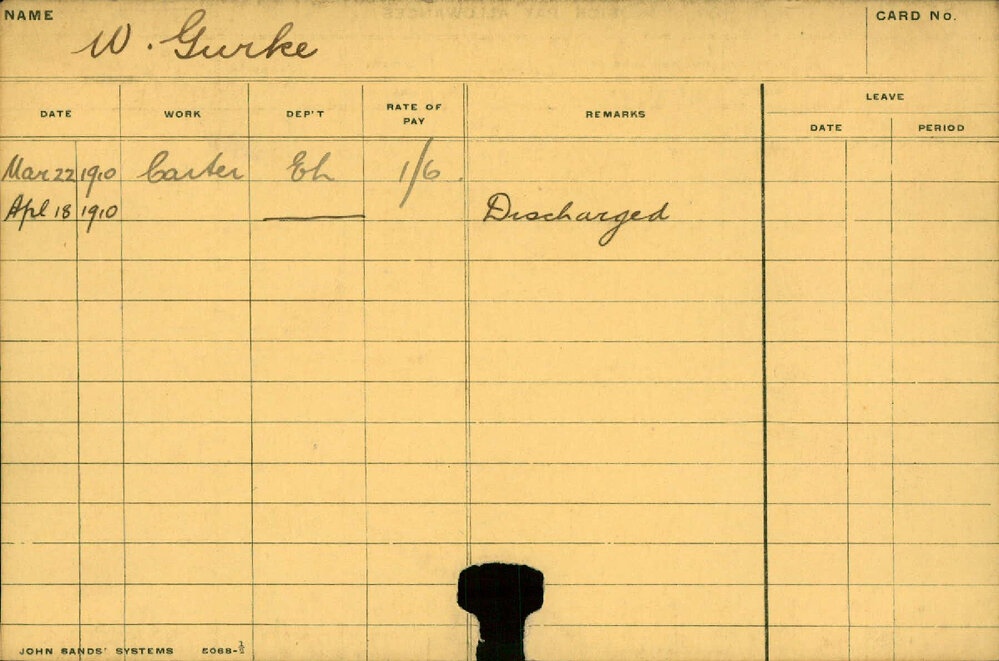 NAME W. Gurke CARD No.
DATE WORK DEP'T RATE OF PAY REMARKS LEAVE
DATE PERIOD
Mar 22 1910 Carter Eh 1/6.
Apl 18 1910 Discharged
JOHN SANDS' SYSTEMS 5068-½